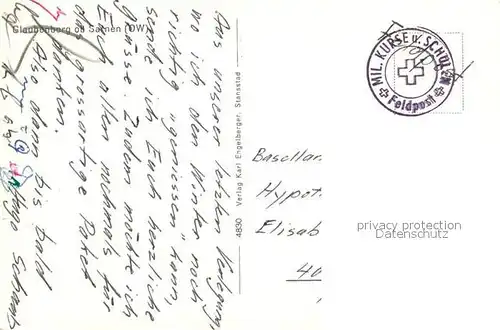 Glaubenberg ob Sarnen (OW)
Aus unserer letzten Verlegung,
wo ich den Winter noch
richtig "geniessen" kann,
sende ich Euch herzliche
Grüsse. Zudem möchte ich
Euch allen nochmals für
das grossartige Paket
danken.
Also dann bis bald
Hugo
4830 Verlag Karl Engelberger, Stansstad
MIL. KURSE u. SCHULEN
Feldpost
Feldpost
Basellan
Hypot
Elisab
40
privacy protection
Datenschutz